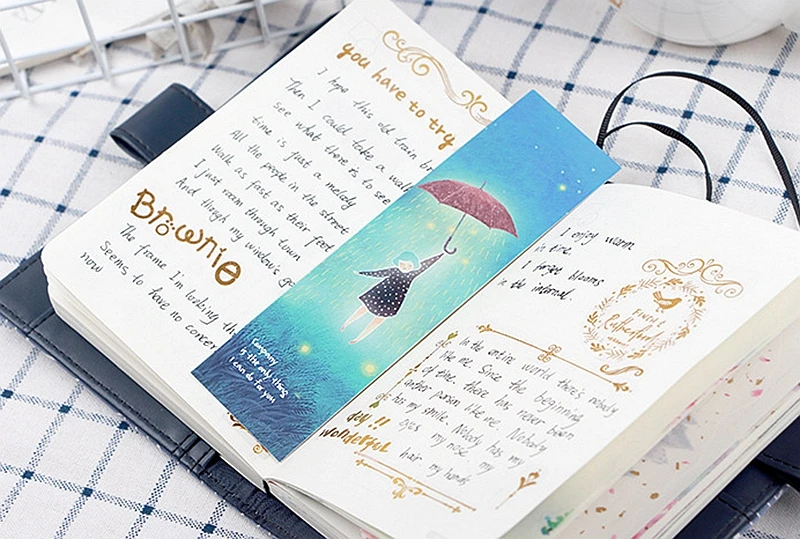 you have to try
I hope this old train br
Then I could take a walk
see what there is to see
time is just a melody
All the people in the street
Walk as fast as their feet
I just roam through town
And though my windows go
Brownie
The frame I'm looking th
Seems to have no concer
now
Company
is the only thing
I can do for you
I enjoy warm
in time.
blooms
in the
In the entire world there's nobody
like me. Since the beginning
of time. there has never been
another person like me. Nobody
has my smile. Nobody has my
eyes my nose my
hair my hands
day!!
wonderful